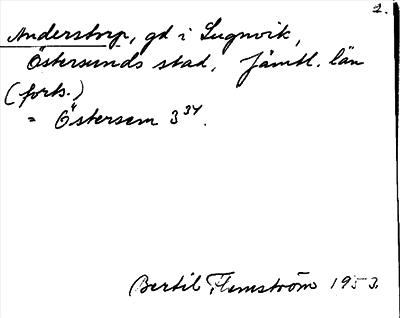 2.
Anderstorp, gd i Lugnvik,
Östersunds stad, Jämtl. län
(forts.)
= Östersem 3³⁴.
Bertil Flemström 1953.